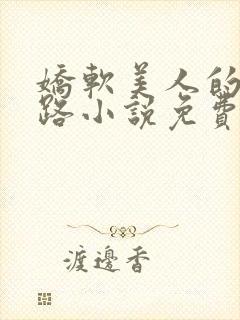 嬌軟美人的
路小説免費
渡邊香